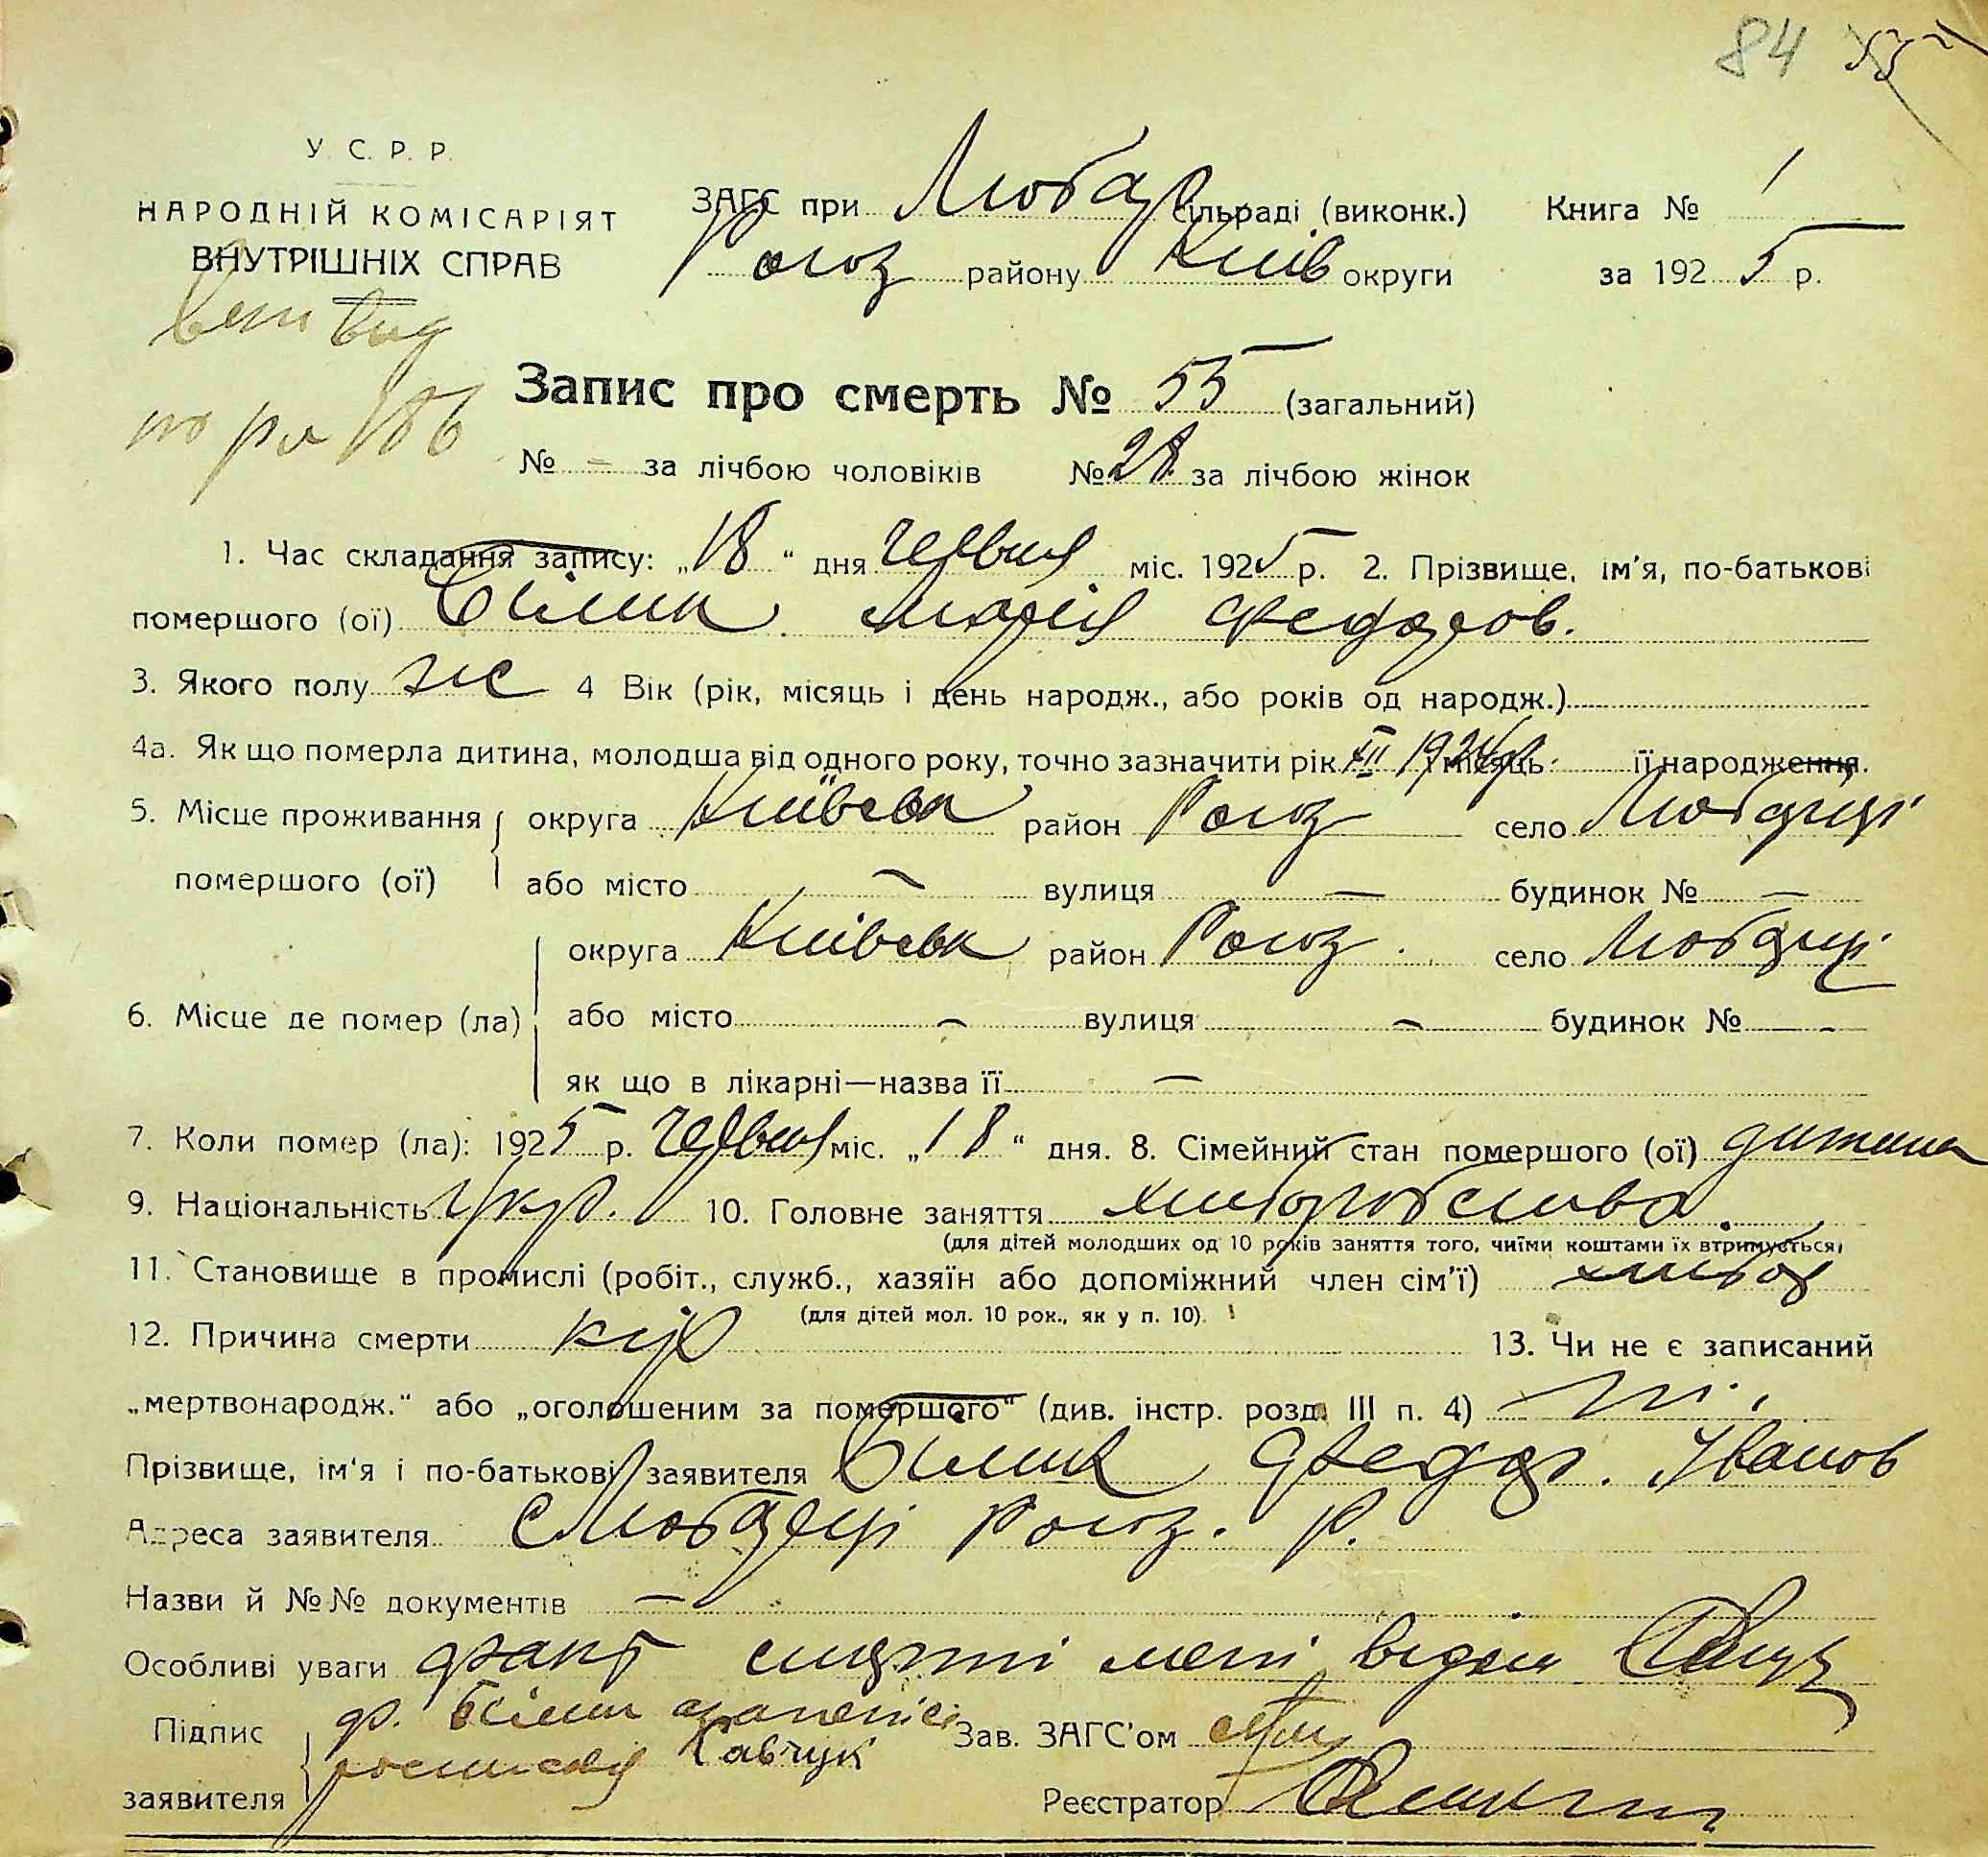 84
У. С. Р. Р.
НАРОДНІЙ КОМІСАРІЯТ
ВНУТРІШНІХ СПРАВ
ЗАГС при Любар сільраді (виконк.)
Рогоз району Київ округи
Книга № 1
за 1925 р.
Запис про смерть № 55 (загальний)
№ – за лічбою чоловіків № 28 за лічбою жінок
1. Час складання запису: „18“ дня Червня міс. 1925 р. 2. Прізвище, ім'я, по-батькові
помершого (ої) Білик Марія Федоров.
3. Якого полу жіс 4 Вік (рік, місяць і день народж., або років од народж.)
4а. Як що померла дитина, молодша від одного року, точно зазначити рік XII 1924 р. і місяць її народження.
5. Місце проживання округа Київськ район Рогоз село Любарці
помершого (ої) або місто — вулиця — будинок № —
округа Київськ район Рогоз. село Любарці
6. Місце де помер (ла) або місто — вулиця — будинок № —
як що в лікарні—назва її —
7. Коли помер (ла): 1925 р. Червня міс. „18“ дня. 8. Сімейний стан помершого (ої) дитина
9. Національність Укр. 10. Головне заняття хліборобство.
(для дітей молодших од 10 років заняття того, чиїми коштами їх втримується)
11. Становище в промислі (робіт., служб., хазяїн або допоміжний член сім'ї) хлібор
(для дітей мол. 10 рок., як у п. 10).
12. Причина смерти кір 13. Чи не є записаний
„мертвонародж.“ або „оголошеним за помершого“ (див. інстр. розд. III п. 4) ні.
Прізвище, ім'я і по-батькові заявителя Білик Федор. Іванов
Адреса заявителя с Любарці Рогоз. р.
Назви й №№ документів —
Особливі уваги факт смерті мені відом
Підпис ф. Білик Зав. ЗАГС'ом
заявителя Савчук
Реєстратор